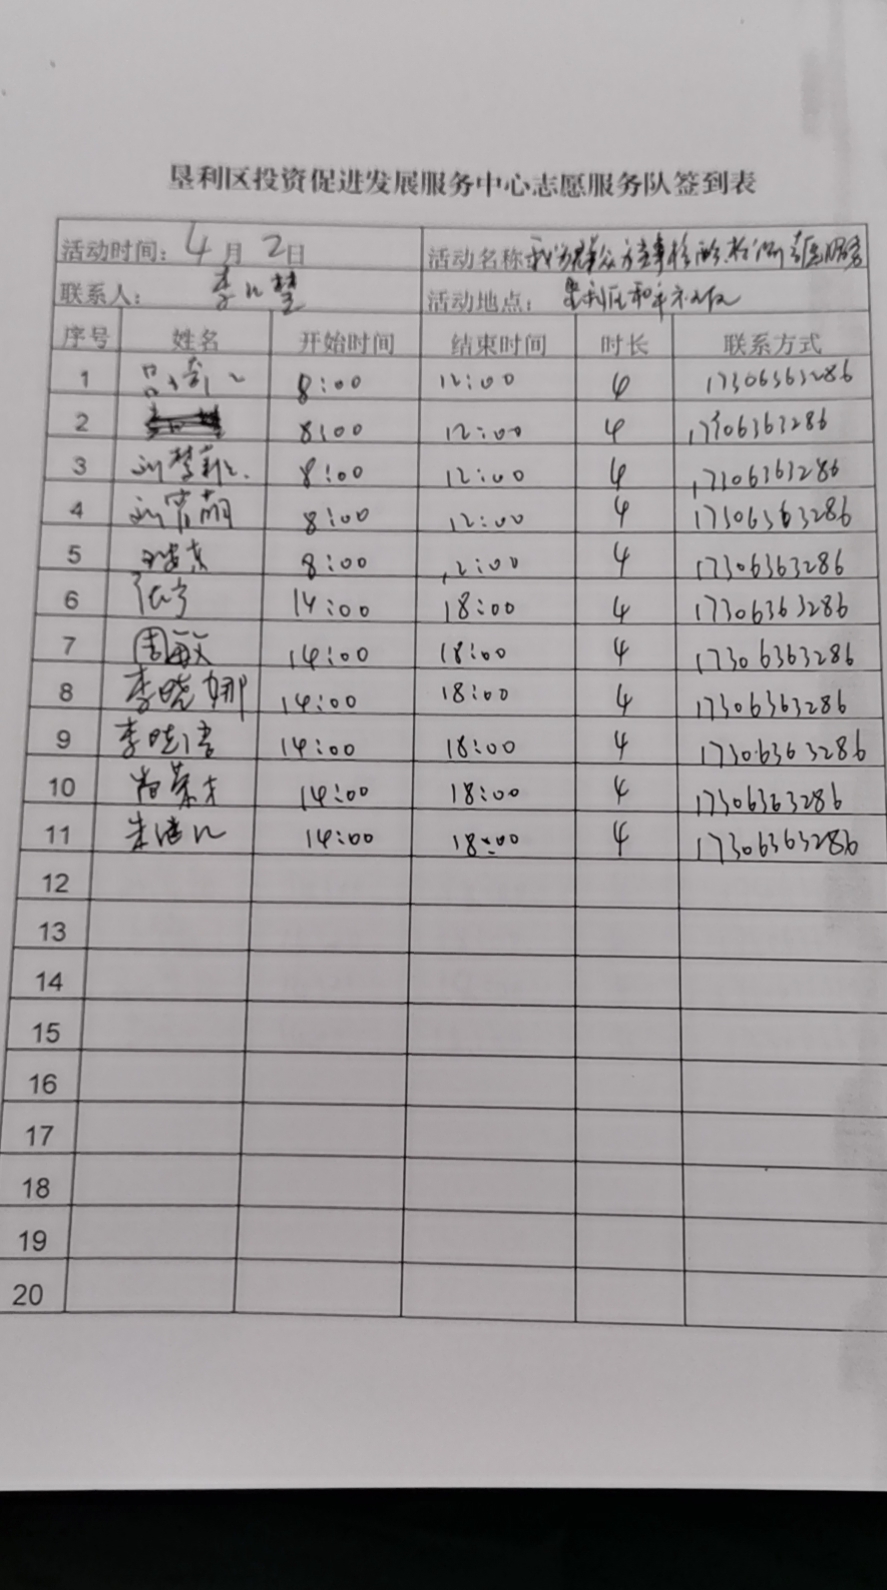 垦利区投资促进发展服务中心志愿服务队签到表
活动时间：4月2日 活动名称：我为群众办实事核酸检测志愿服务
联系人：李 楚 活动地点：垦利区和平社区
序号 姓名 开始时间 结束时间 时长 联系方式
1 8:00 12:00 4 17306363286
2 8:00 12:00 4 17306363286
3 刘梦 8:00 12:00 4 17306363286
4 刘常娟 8:00 12:00 4 17306363286
5 8:00 12:00 4 17306363286
6 14:00 18:00 4 17306363286
7 周敏 14:00 18:00 4 17306363286
8 李晓娜 14:00 18:00 4 17306363286
9 李晓倩 14:00 18:00 4 17306363286
10 尚荣才 14:00 18:00 4 17306363286
11 朱 14:00 18:00 4 17306363286
12
13
14
15
16
17
18
19
20